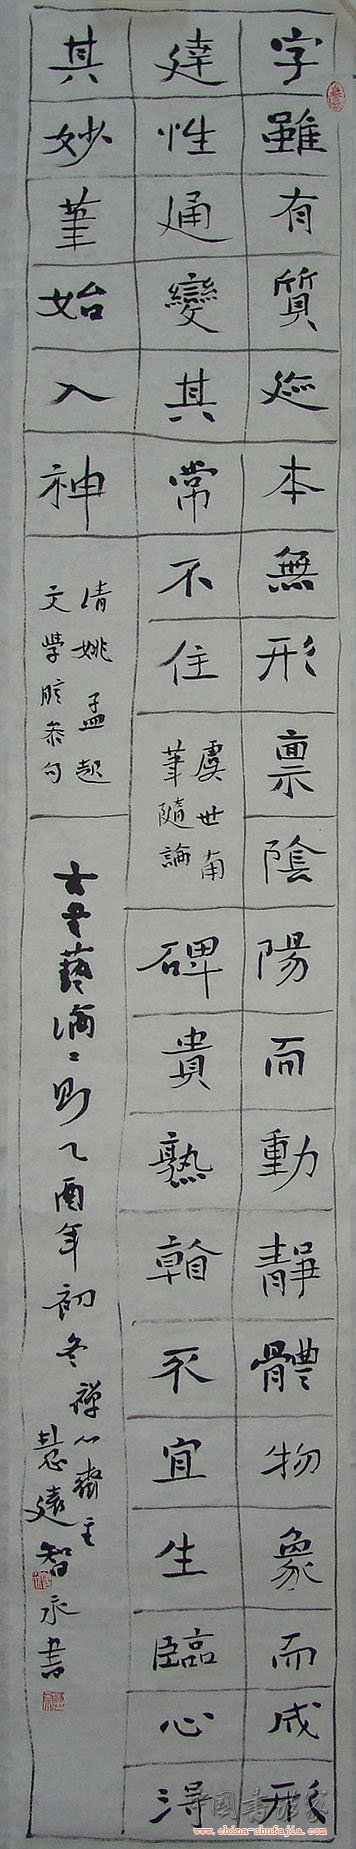 字雖有質迹本無形稟陰陽而動靜體物象而成形
達性通變其常不住
虞世南
筆隨論
碑貴熟翰不宜生臨心得
其妙筆始入神
清姚孟起
文學臆參句
古書藝論二則乙酉年初冬禪心齋主
慧遠智永書
www.china-shufajia.com